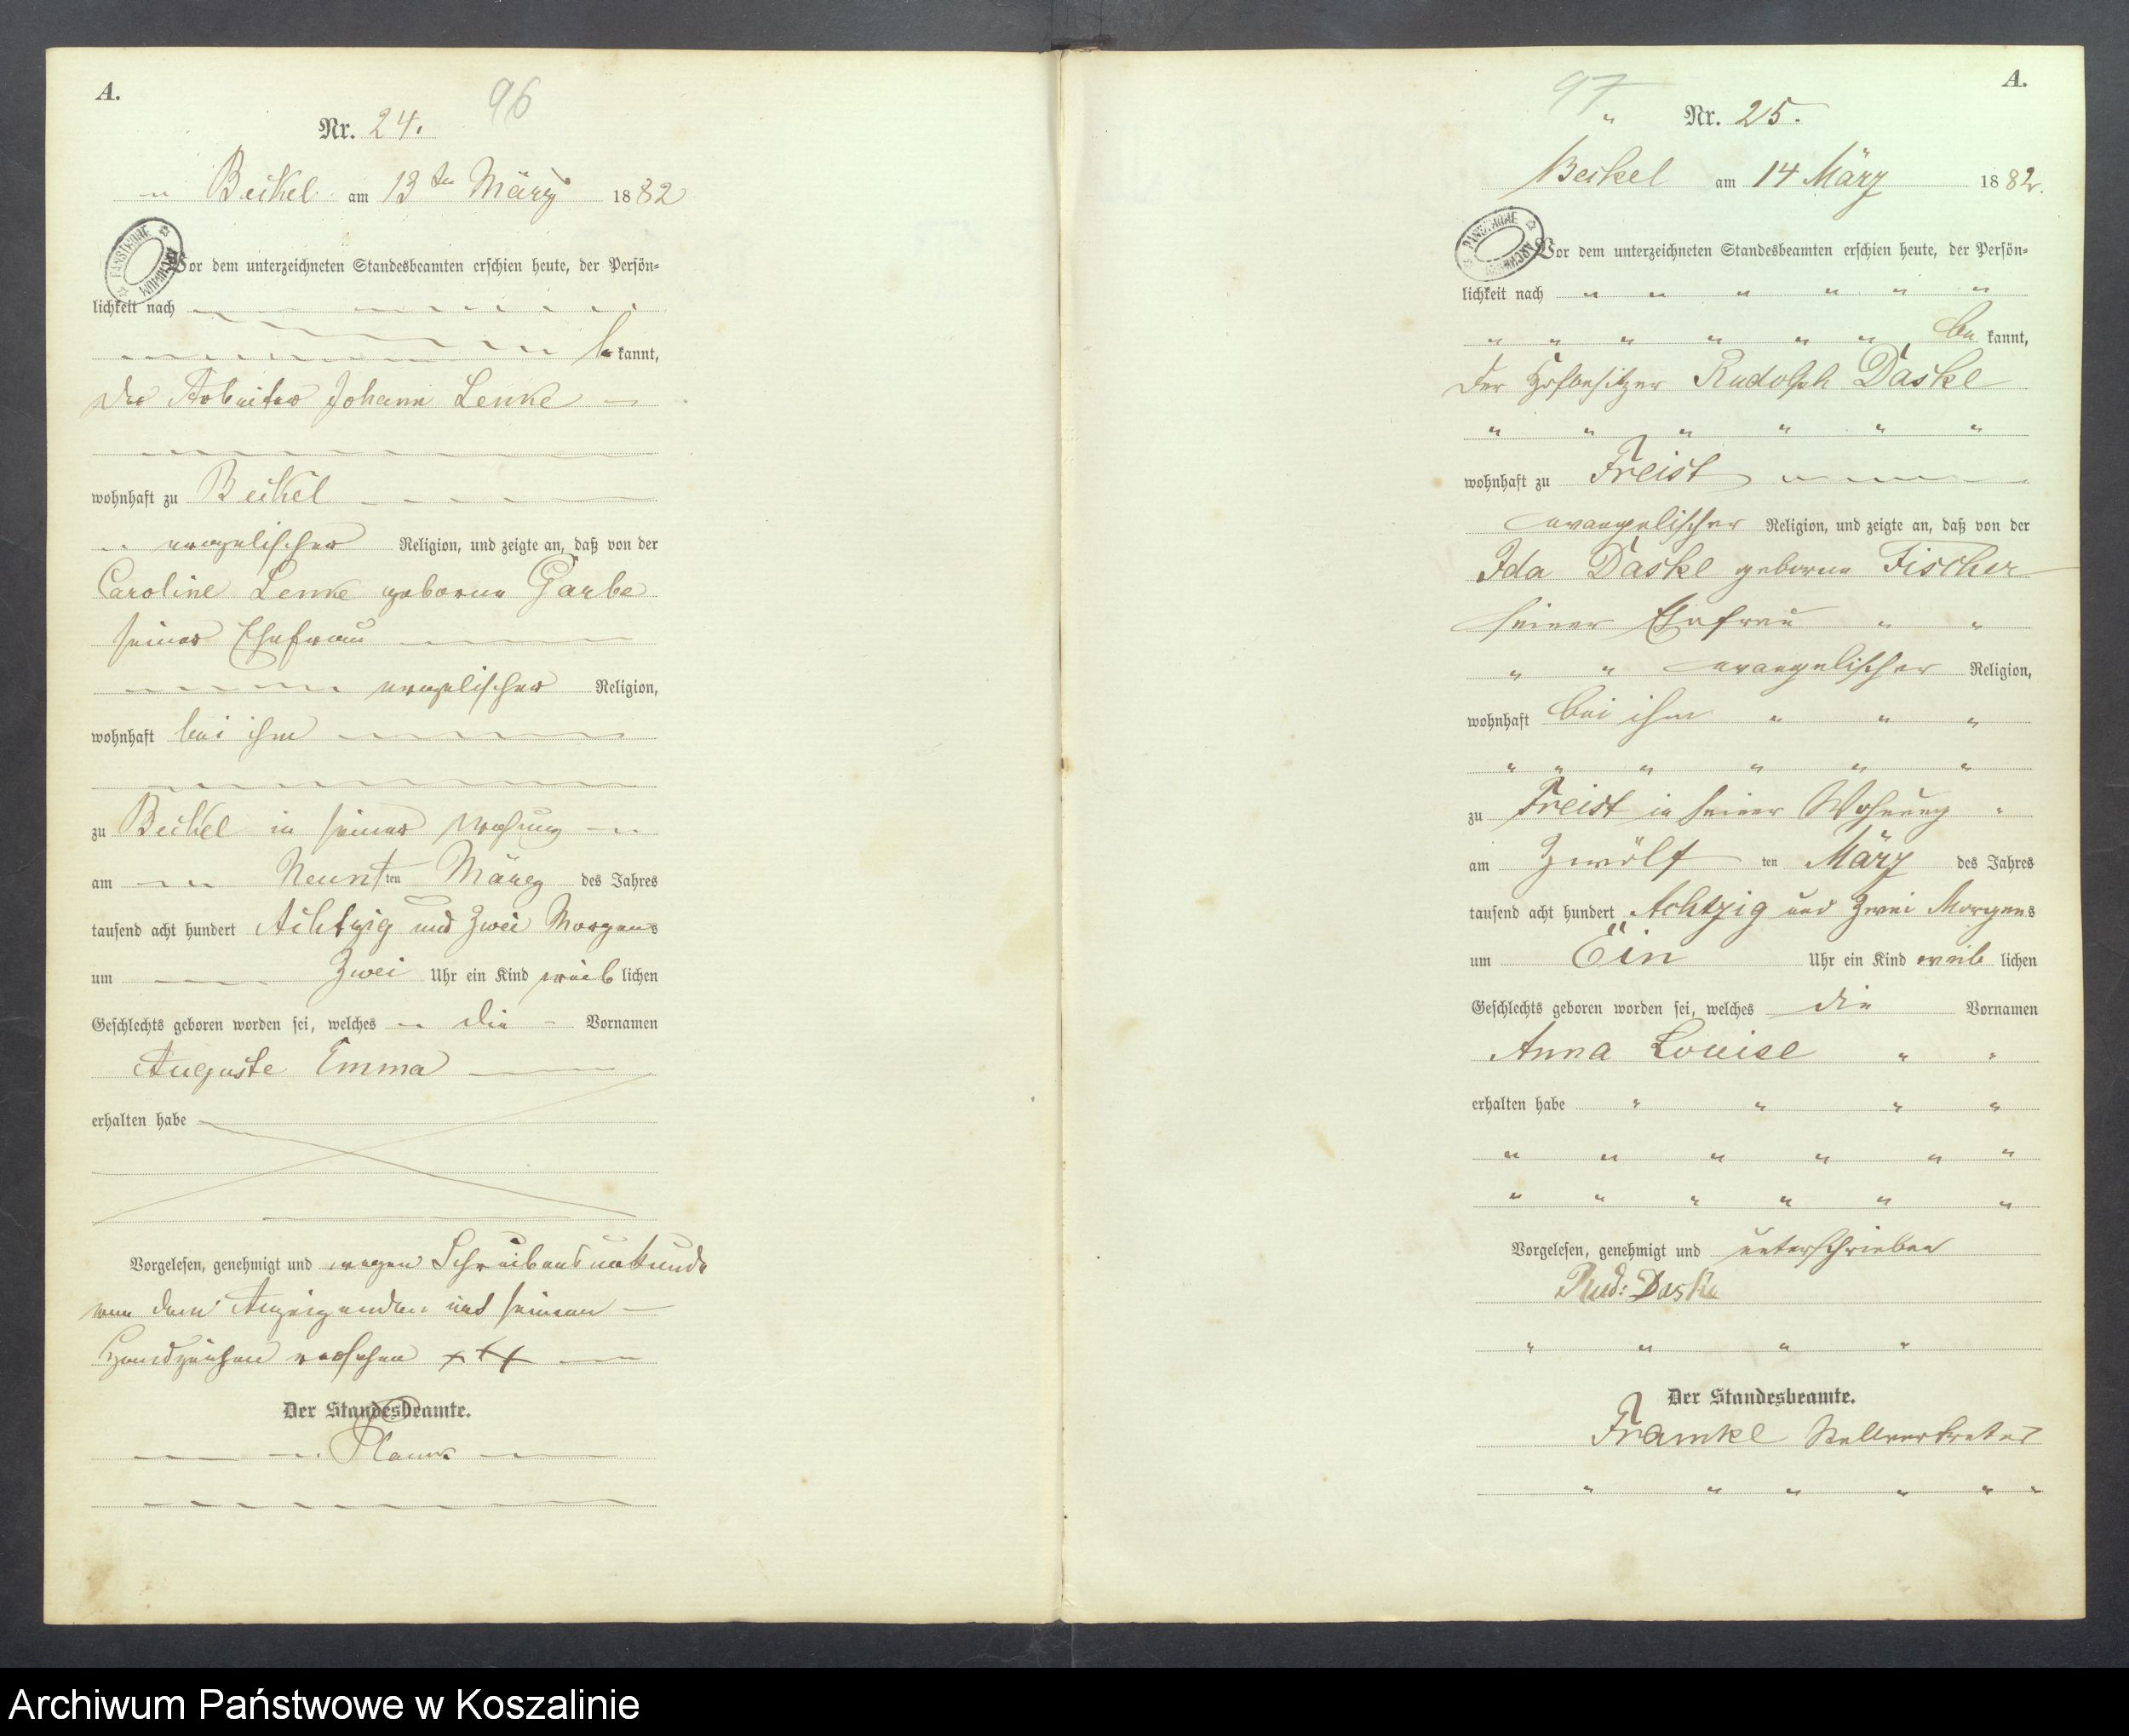 A.
96
Nr. 24.
Beikel am 13ten März 1882
PANSTWOWE ARCHIWUM
Vor dem unterzeichneten Standesbeamten erschien heute, der Persön-
lichkeit nach
be kannt,
der Arbeiter Johann Lenke
wohnhaft zu Beikel
evangelischer Religion, und zeigte an, daß von der
Caroline Lenke geborne Garbe
seiner Ehefrau
evangelischer Religion,
wohnhaft bei ihm
zu Beikel in seiner Wohnung
am Neunt ten März des Jahres
tausend acht hundert Achtzig und Zwei Morgens
um Zwei Uhr ein Kind weib lichen
Geschlechts geboren worden sei, welches die Vornamen
Auguste Emma
erhalten habe
Vorgelesen, genehmigt und wegen Schreibensunkunde
von dem Anzeigenden mit seinem
Handzeichen versehen +++
Der Standesbeamte.
97
A.
Nr. 25.
Beikel am 14 März 1882.
PANSTWOWE ARCHIWUM
Vor dem unterzeichneten Standesbeamten erschien heute, der Persön-
lichkeit nach
be kannt,
der Hofbesitzer Rudolph Daske
wohnhaft zu Freist
evangelischer Religion, und zeigte an, daß von der
Ida Daske geborne Fischer
seiner Ehefrau
evangelischer Religion,
wohnhaft bei ihm
zu Freist in seiner Wohnung
am Zwölf ten März des Jahres
tausend acht hundert Achtzig und Zwei Morgens
um Ein Uhr ein Kind weib lichen
Geschlechts geboren worden sei, welches die Vornamen
Anna Louise
erhalten habe
Vorgelesen, genehmigt und unterschrieben
Rud: Daske
Der Standesbeamte.
Framke Stellvertreter
Archiwum Państwowe w Koszalinie